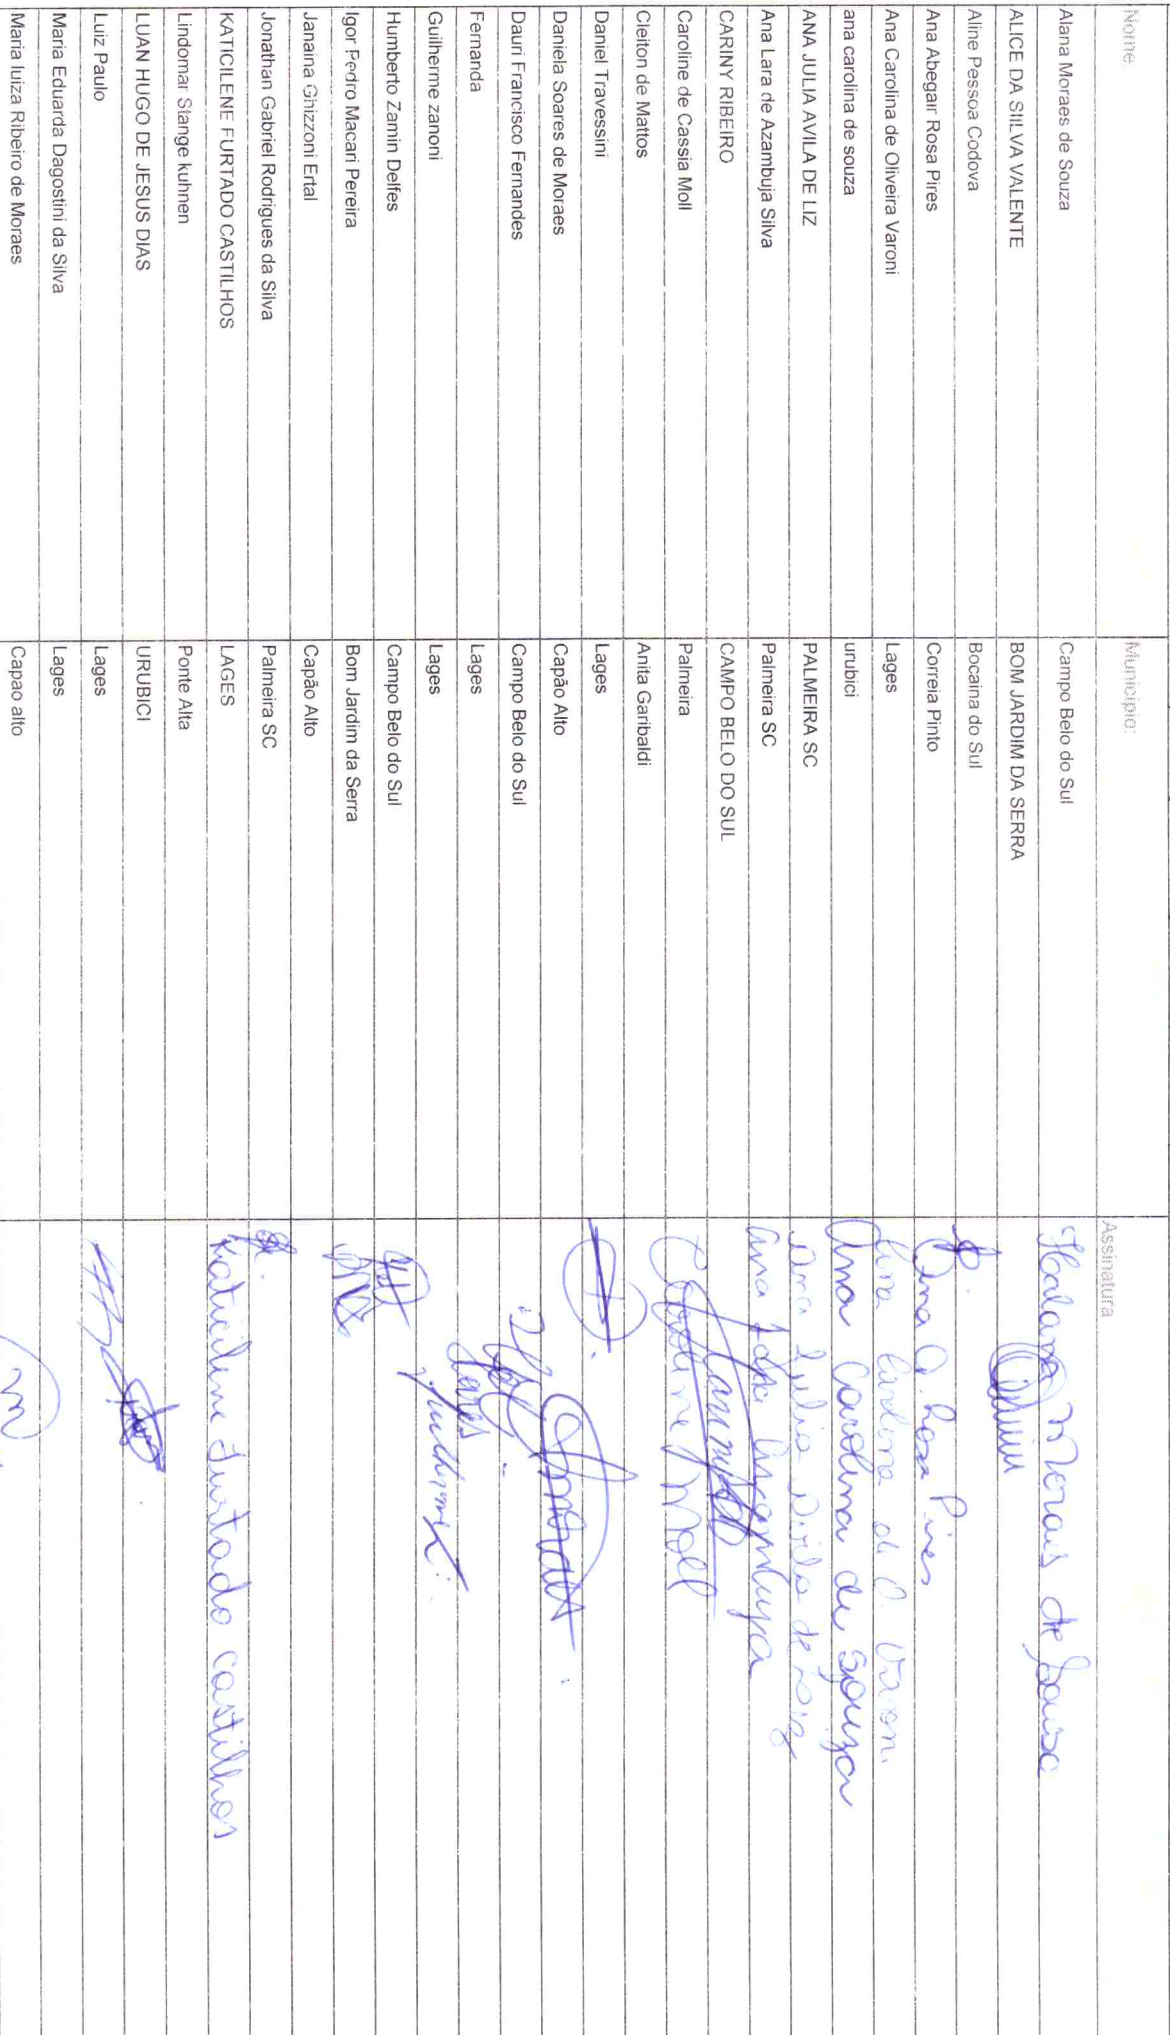 Nome: Município: Assinatura
Alana Moraes de Souza Campo Belo do Sul Halana Moraes de Souza
ALICE DA SILVA VALENTE BOM JARDIM DA SERRA
Aline Pessoa Codova Bocaina do Sul
Ana Abegair Rosa Pires Correia Pinto Ana A. Rosa Pires
Ana Carolina de Oliveira Varoni Lages Ana Carolina de O. Varoni
ana carolina de souza urubici Ana Carolina de Souza
ANA JULIA AVILA DE LIZ PALMEIRA SC Ana Julia Avila de
Ana Lara de Azambuja Silva Palmeira SC Ana Azambuja
CARINY RIBEIRO CAMPO BELO DO SUL
Caroline de Cassia Moll Palmeira Caroline Moll
Cleiton de Mattos Anita Garibaldi
Daniel Travessini Lages
Daniela Soares de Moraes Capão Alto
Dauri Francisco Fernandes Campo Belo do Sul
Fernanda Lages
Guilherme zanoni Lages
Humberto Zamin Delfes Campo Belo do Sul
Igor Pedro Macari Pereira Bom Jardim da Serra
Janaina Ghizzoni Ertal Capão Alto
Jonathan Gabriel Rodrigues da Silva Palmeira SC
KATICILENE FURTADO CASTILHOS LAGES Katicilene Furtado Castilhos
Lindomar Stange kuhnen Ponte Alta
LUAN HUGO DE JESUS DIAS URUBICI
Luiz Paulo Lages
Maria Eduarda Dagostini da Silva Lages
Maria luiza Ribeiro de Moraes Capao alto